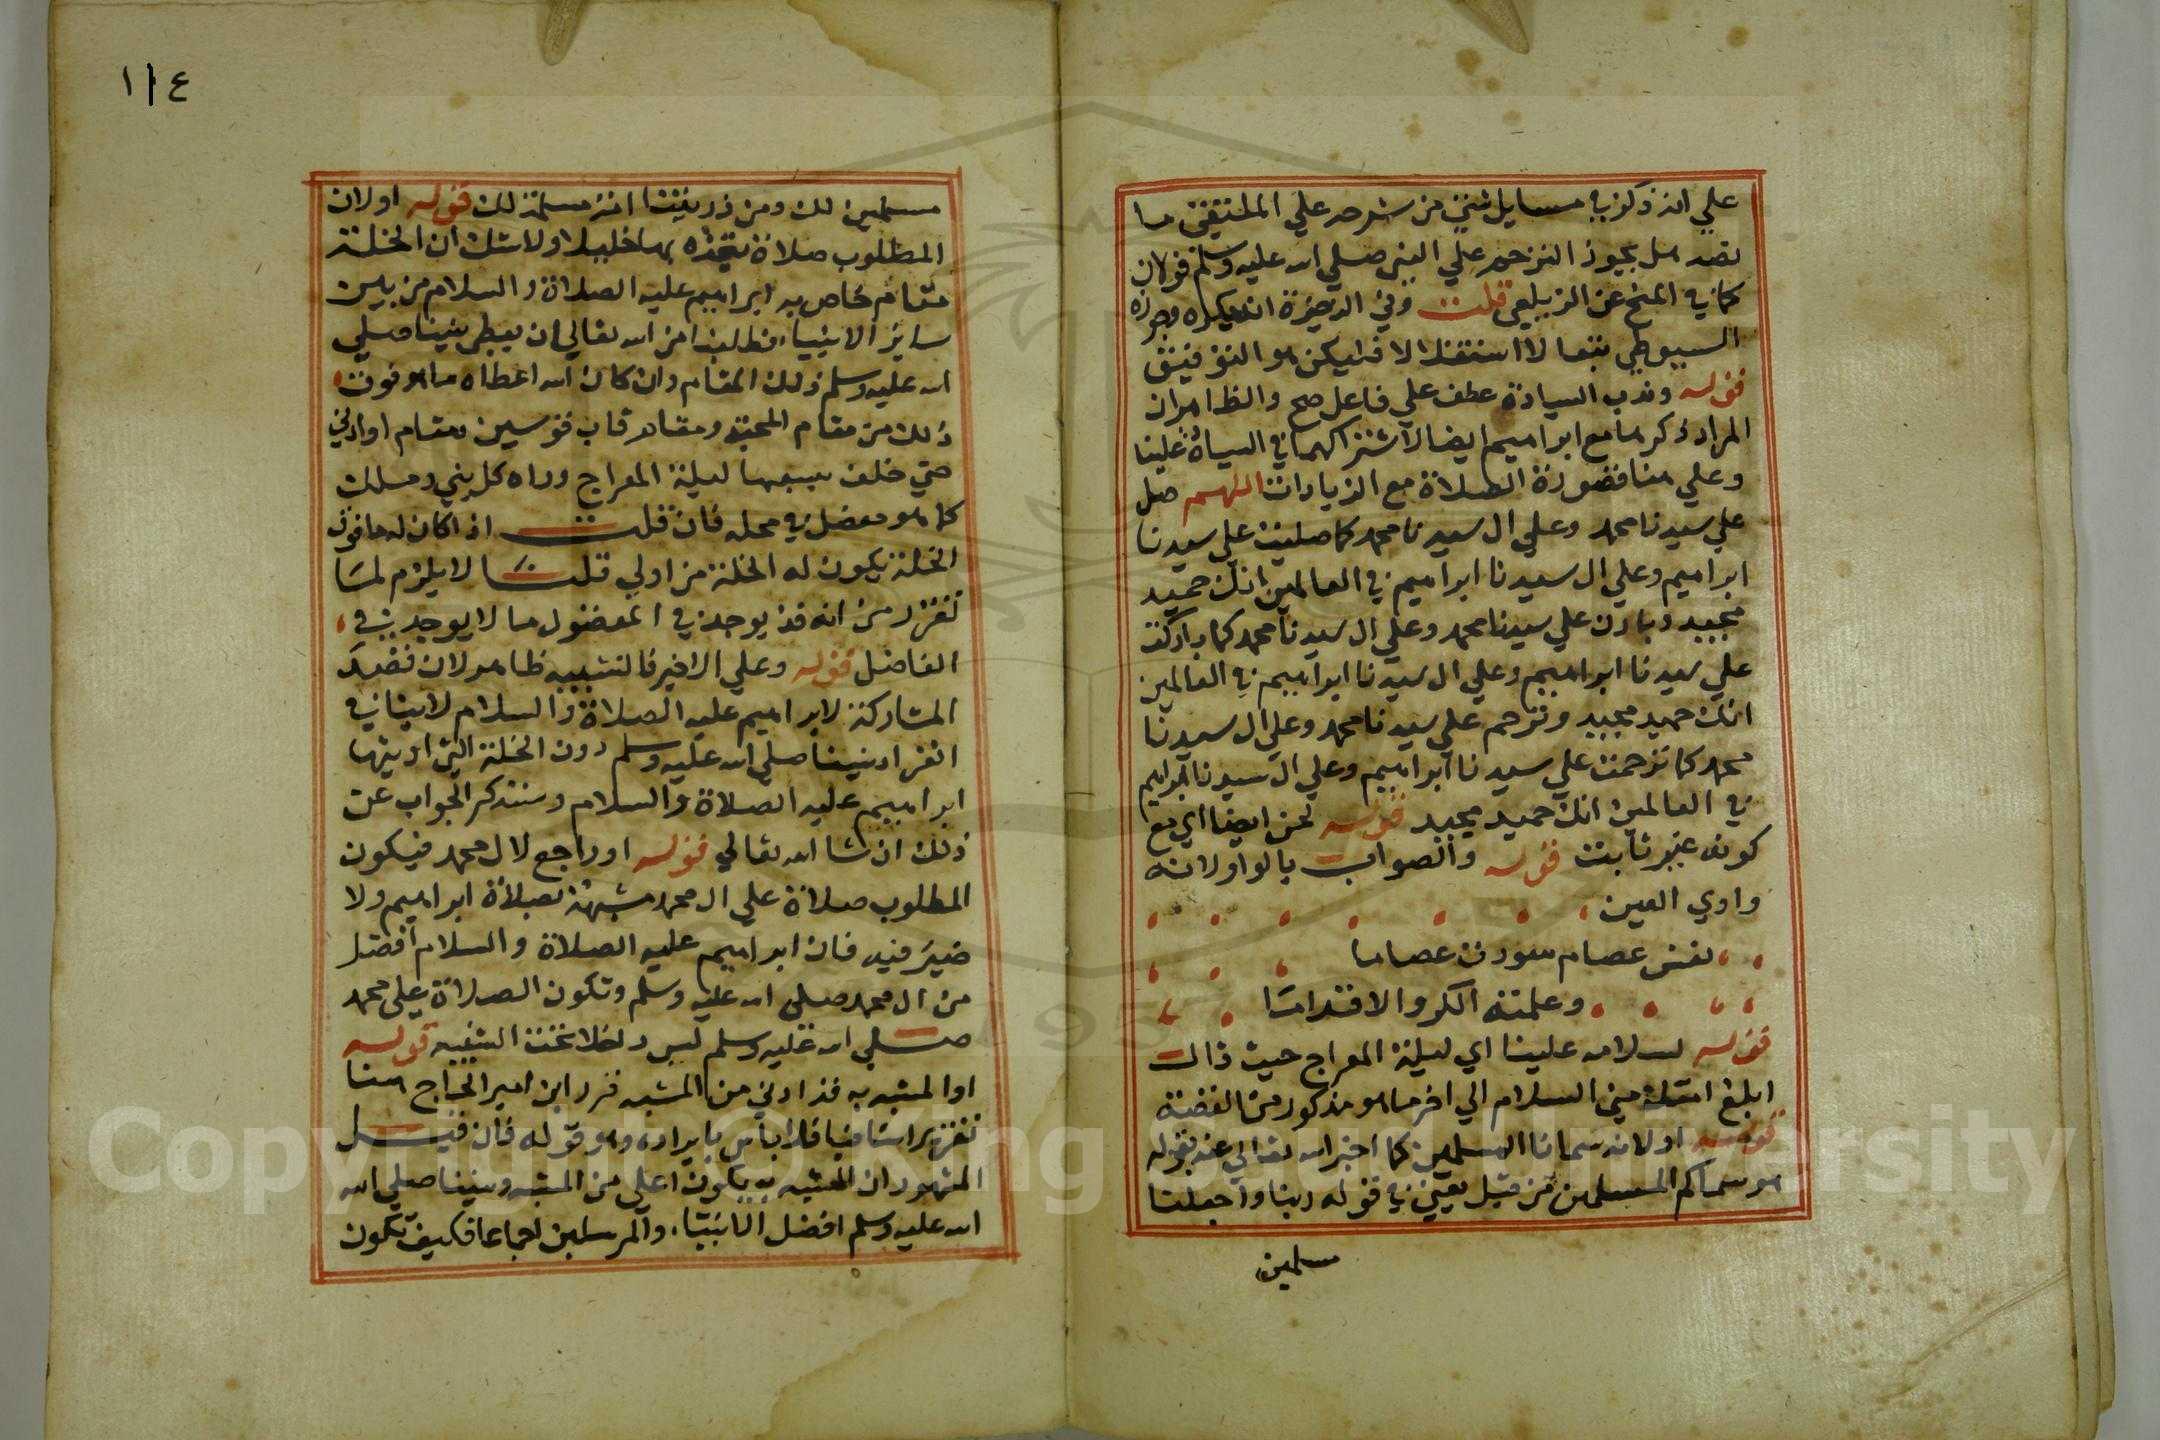 علي انه ذكر في مسايل شتي من شرحه علي الملتقي ما
نصه هل يجوز الترحم علي النبي صلي الله عليه وسلم قولان
كما في المنح عن الزيلعي قلت وفي الذخيرة انه يكره وجوزه
السيوطي تبعا لا استقلالا فليكن هو التوفيق
قوله وندب السيادة عطف علي فاعل صح والظاهران
المراد ذكرها مع ابراهيم ايضا لاشتراكهما في السيادة علينا
وعلي هذا فصورة الصلاة مع الزيادات اللهم صل
علي سيدنا محمد وعلي ال سيدنا محمد كما صليت علي سيدنا
ابراهيم وعلي ال سيدنا ابراهيم في العالمين انك حميد
مجيد وبارك علي سيدنا محمد وعلي ال سيدنا محمد كما باركت
علي سيدنا ابراهيم وعلي ال سيدنا ابراهيم في العالمين
انك حميد مجيد وترحم علي سيدنا محمد وعلي ال سيدنا
محمد كما ترحمت علي سيدنا ابراهيم وعلي ال سيدنا ابراهيم
في العالمين انك حميد مجيد قوله لحن ايضا اي مع
كونه غير ثابت قوله والصواب بالواو لانه
واوي العين
نفس عصام سودت عصاما
وعلمته الكر والاقداما
قوله لسلامه علينا اي ليلة المعراج حيث قال
ابلغ امتك مني السلام الي اخر ما هو مذكور من القصة
قوله او لانه سمانا المسلمين كما اخبر الله تعالي عنه بقوله
هو سماكم المسلمين من قبل يعني في قوله ربنا واجعلنا
مسلمين
١١٤
مسلمين لك ومن ذريتنا امة مسلمة لك قوله او لان
المطلوب صلاة يتخذه بها خليلا ولا شك ان الخلة
مقام خاص به ابراهيم عليه الصلاة والسلام من بين
ساير الانبياء فطلبنا من الله تعالي ان يعطي نبينا صلي
الله عليه وسلم ذلك المقام وان كان الله اعطاه ما هو فوق
ذلك من مقام المحبة ومقام قاب قوسين ومقام او ادني
حتي خلف جميعها ليلة المعراج وراه كل نبي ومملك
كما هو مفصل في محله فان قلت اذا كان له ما فوق
الخلة يكون له الخلة من اولي قلت لا يلزم لما
تقرر من انه قد يوجد في المفضول ما لا يوجد في
الفاضل قوله وعلي الاخير فالتشبيه ظاهر لان قصد
المشاركة لابراهيم عليه الصلاة والسلام لا ينافي
انفراد نبينا صلي الله عليه وسلم دون الخلة التي اوتيها
ابراهيم عليه الصلاة والسلام وسنذكر الجواب عن
ذلك ان شا الله تعالي قوله او راجع لال محمد فيكون
المطلوب صلاة علي ال محمد مشبهة بصلاة ابراهيم ولا
ضير فيه فان ابراهيم عليه الصلاة والسلام افضل
من ال محمد صلي الله عليه وسلم وتكون الصلاة علي محمد
صلي الله عليه وسلم ليس داخلا تحت التشبيه قوله
او المشبه به قد ادني من المشبه قرر ابن امير الحاج هنا
تقريرا شافيا فلا باس بايراده وهو قوله فان قيل
المشهور ان المشبه به يكون اعلي من المشبه ونبينا صلي الله
الله عليه وسلم افضل الانبياء والمرسلين اجماعا فكيف تكون
Copyright © King Saud University